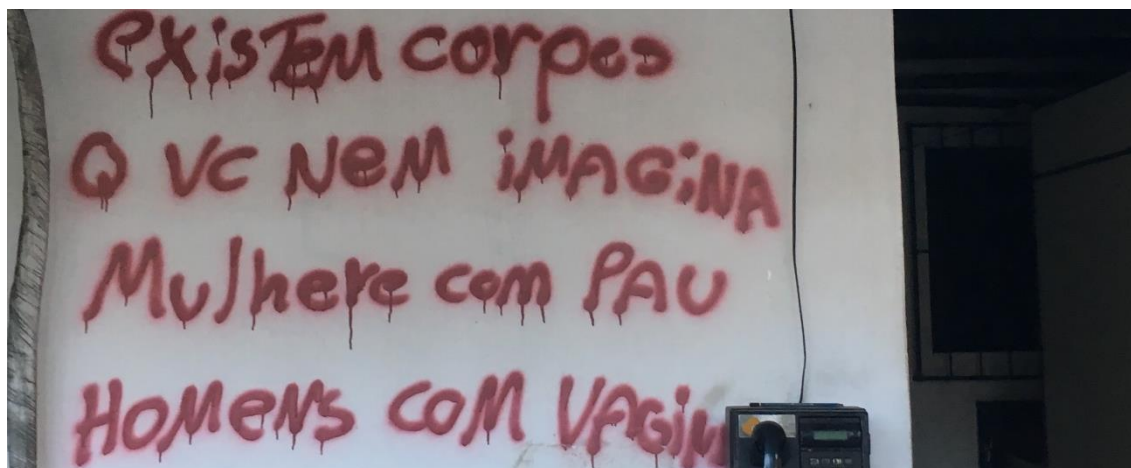 exisTem corpos
Q VC Nem iMAGiNA
Mulhere com PAU
HOMeNs COM VAGiN